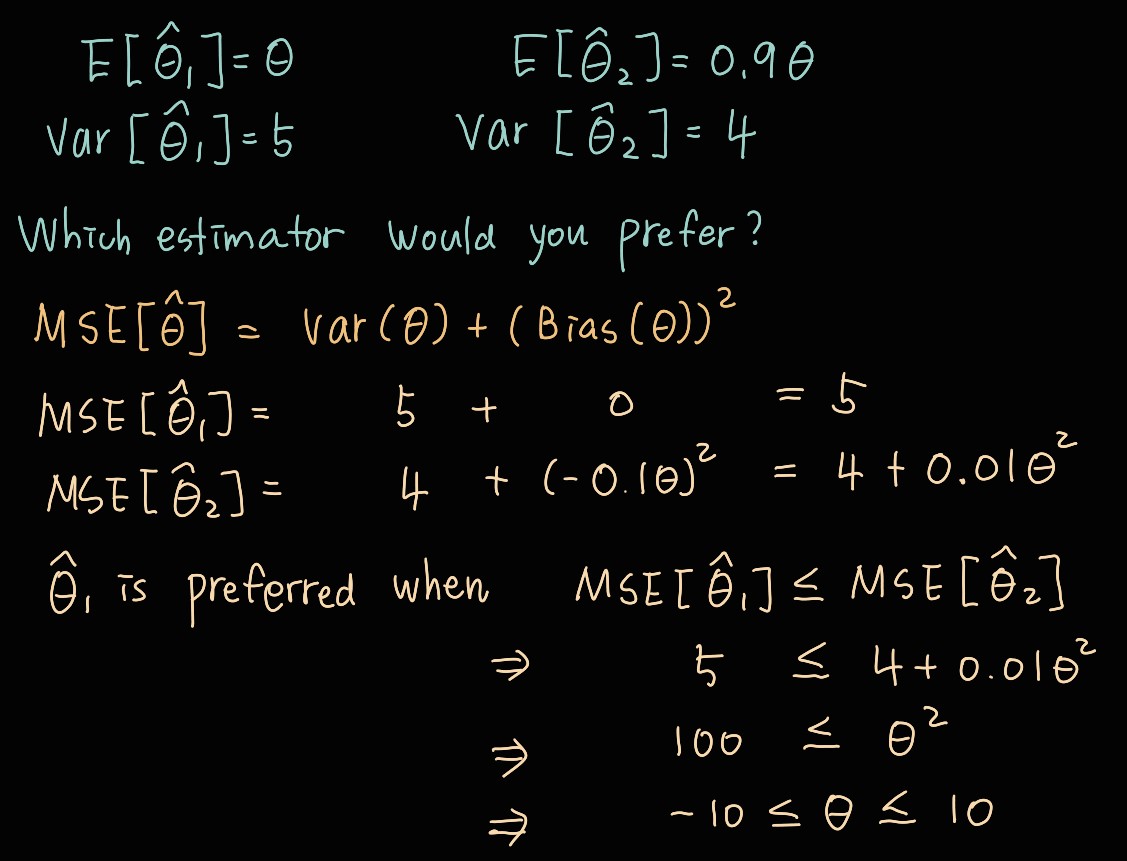 E[θ̂₁]=θ E[θ̂₂]=0.9θ
Var[θ̂₁]=5 Var[θ̂₂]=4
Which estimator would you prefer?
MSE[θ̂] = Var(θ)+(Bias(θ))²
MSE[θ̂₁]= 5 + 0 = 5
MSE[θ̂₂]= 4 + (-0.1θ)² = 4+0.01θ²
θ̂₁ is preferred when MSE[θ̂₁]≤MSE[θ̂₂]
⇒ 5 ≤ 4+0.01θ²
⇒ 100 ≤ θ²
⇒ -10 ≤ θ ≤ 10